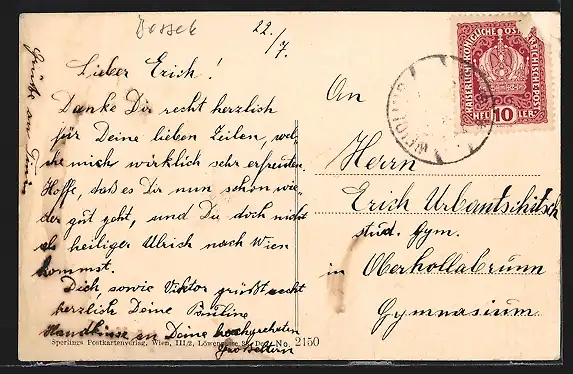 22./7.
Lieber Erich!
Danke Dir recht herzlich
für Deine lieben Zeilen, wel-
che mich wirklich sehr erfreuten
Hoffe, daß es Dir nun schon wie-
der gut geht, und Du doch nicht
als heiliger Ulrich nach Wien
kommst.
Dich, sowie Viktor grüßt recht
herzlich Deine Pauline
Handküsse an Deine hochgeehrten
Großeltern
Grüße an
Sperlings Postkartenverlag, Wien, III/2, Löwengasse No. 2150
KAISERLICH KÖNIGLICHE ÖSTERREICHISCHE POST
HELLER 10
An
Herrn
Erich Urbantschitsch
stud. Gym.
in Oberhollabrunn
Gymnasium.